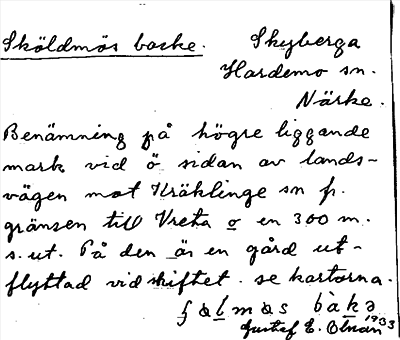 Sköldmös backe. Skyberga
Hardemo sn.
Närke.
Benämning på högre liggande
mark vid ö. sidan av lands-
vägen mot Kräklinge sn fr.
gränsen till Vreta o en 300 m.
s. ut. På den är en gård ut-
flyttad vid skiftet. se kartorna.
bàkə
Gustaf E. Olson 1933